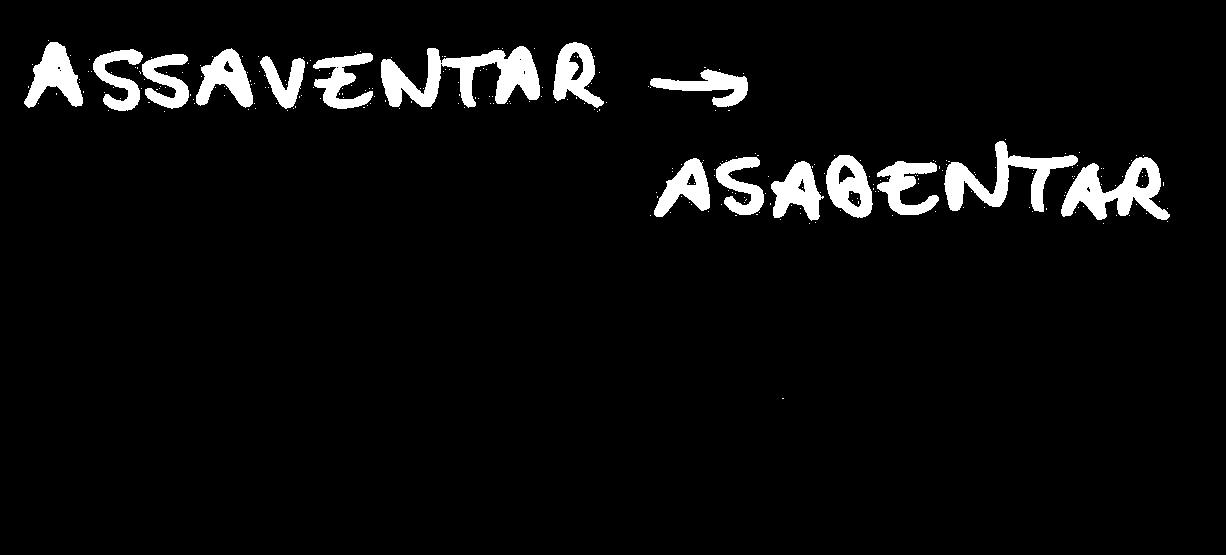 ASSAVENTAR →
ASABENTAR